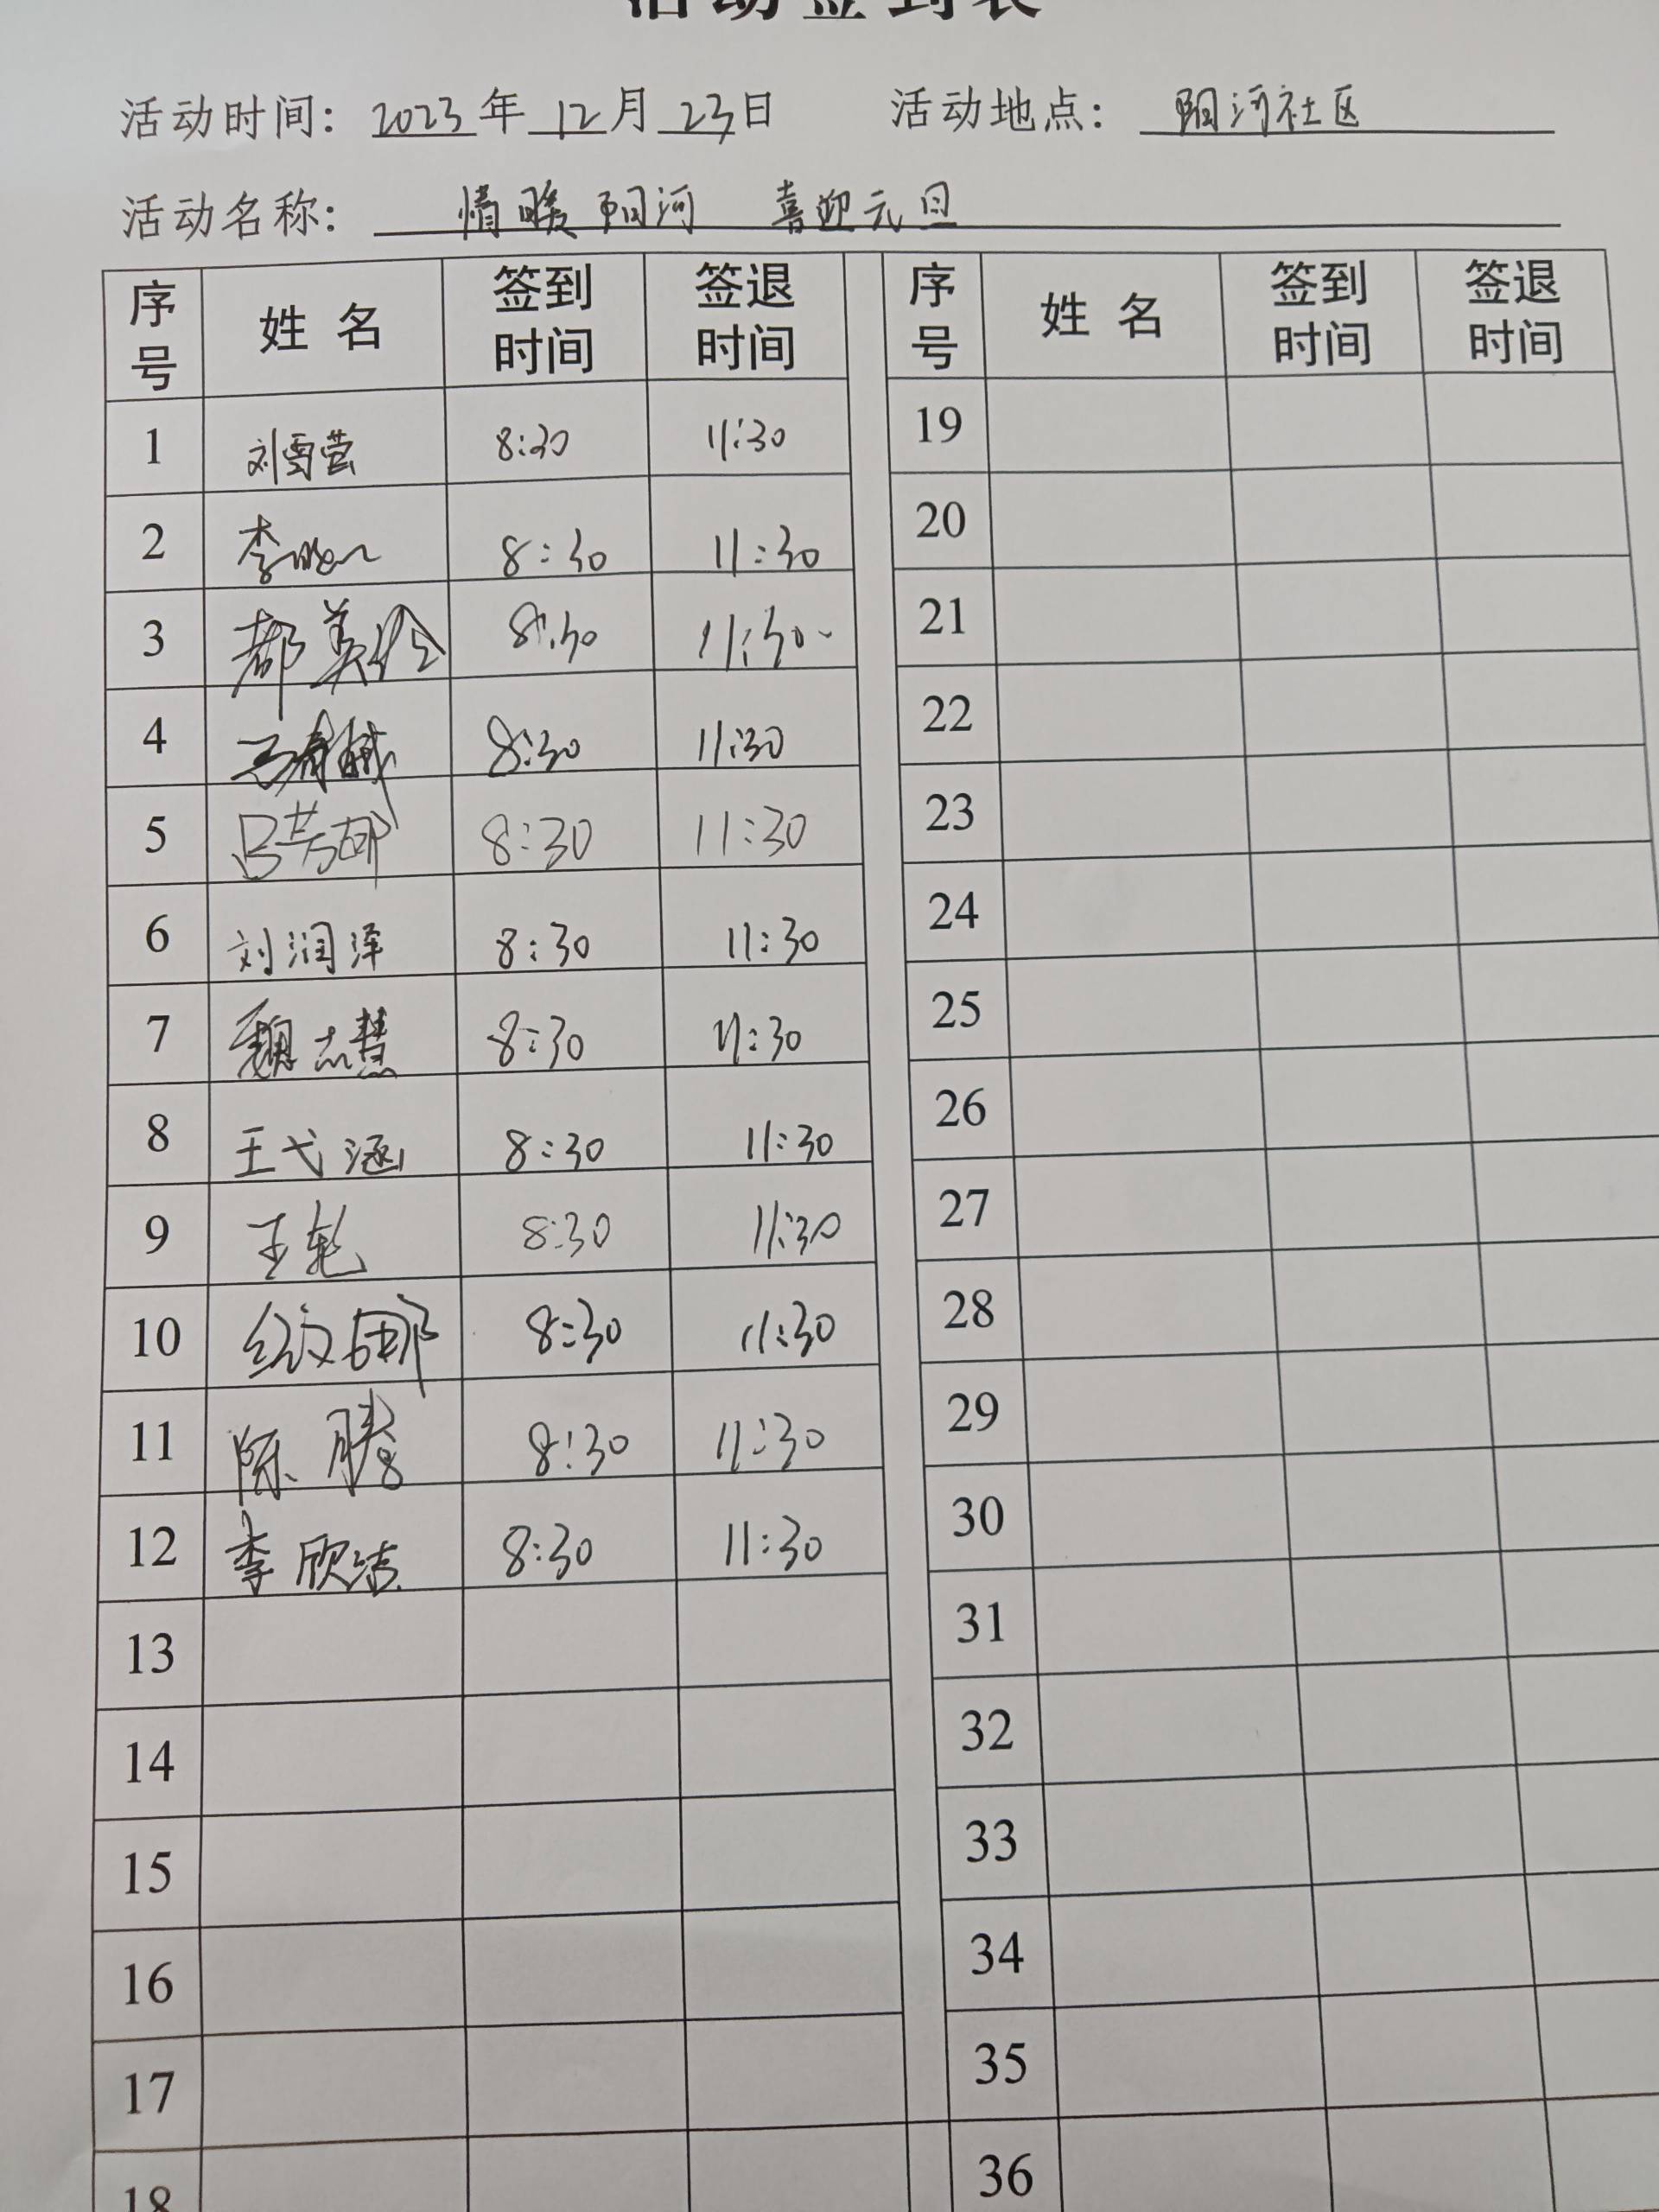 活动签到表
活动时间: 2023 年 12 月 23 日 活动地点: 阳河社区
活动名称: 情暖阳河 喜迎元旦
序号 姓名 签到时间 签退时间 序号 姓名 签到时间 签退时间
1 刘雪莹 8:30 11:30 19
2 李晓 8:30 11:30 20
3 都美玲 8:30 11:30 21
4 8:30 11:30 22
5 吕芳郁 8:30 11:30 23
6 刘润泽 8:30 11:30 24
7 魏志慧 8:30 11:30 25
8 王弋涵 8:30 11:30 26
9 王乾 8:30 11:30 27
10 8:30 11:30 28
11 陈腾 8:30 11:30 29
12 李欣洁 8:30 11:30 30
13 31
14 32
15 33
16 34
17 35
18 36